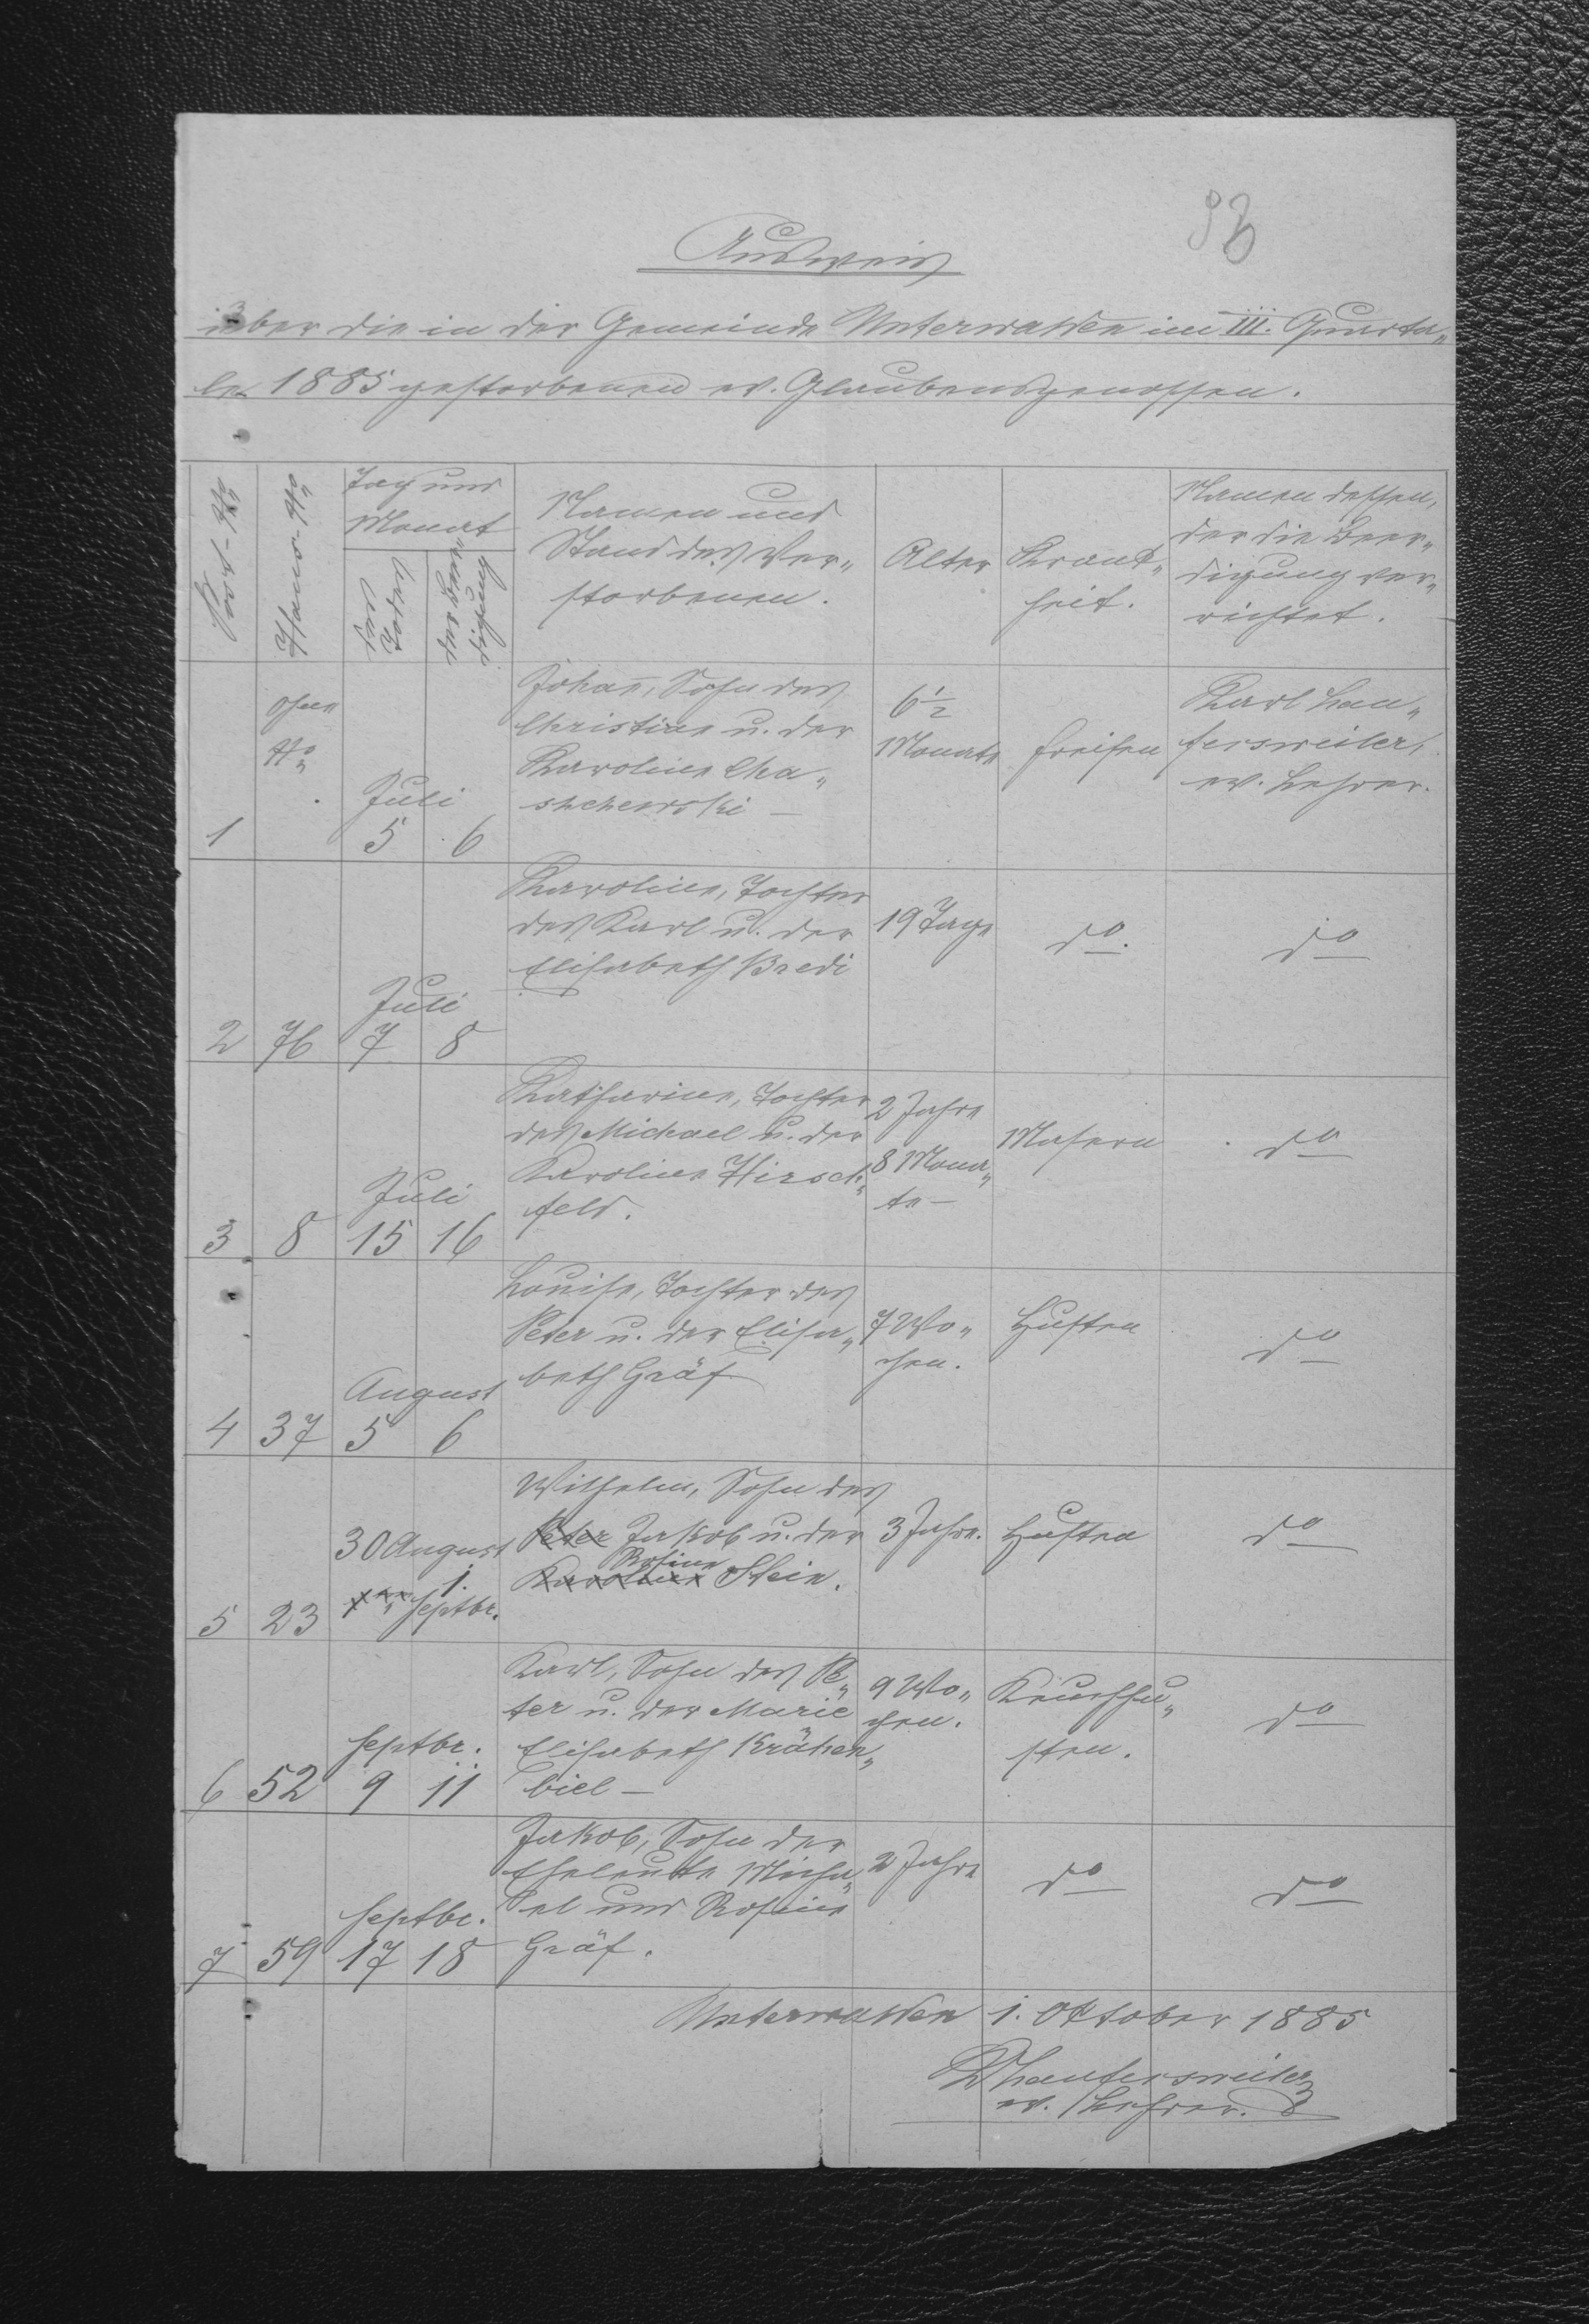 98
Ausweis
über die in der Gemeinde Unterwalden im III. Quarta„
le 1885 gestorbenen ev. Glaubensgenossen.
Post-No
Haus-No
Tag und
Monat
des
Todes
der Beer„
digung
Namen und
Stand des Ver„
storbenen.
Alter
Krank„
heit.
Namen dessen,
der die Beer„
digung ver„
richtet.
1
ohne
No
Juli
5 6
Johan̄, Sohn des
Christian u. der
Karoline Cha„
shchewski —
6 1/2
Monate
Freisen
Karl Lau„
fersweiler,
ev. Lehrer.
2 76
Juli
7 8
Karoline, Tochter
des Karl u. der
Elisabeth Bredi
19 Tage
do.
do
3 8
Juli
15 16
Katharine, Tochter
des Michael u. der
Karoline Hirsch„
feld.
2 Jahre
8 Mona„
te —
Masern
do
4 37
August
5 6
Louise, Tochter des
Peter u. der Elisa„
beth Gräf
7 Wo„
chen.
Husten
do
5 23
30 August
1.
Septbr.
Wilhelm, Sohn des
Peter Jakob u. der
Rosina
Karoline Stein.
3 Jahre.
Husten
do
6 52
Septbr.
9 11
Karl, Sohn des Pe„
ter u. der Marie
Elisabeth Krähen„
biel —
9 Wo„
chen.
Keuchhu„
sten.
do
7 59
Septbr.
17 18
Jakob, Sohn der
Eheleute Micha„
el und Rosina
Gräf.
2 Jahre
do
do
Unterwalden 1. Oktober 1885
KLaufersweiler
ev. Lehrer.